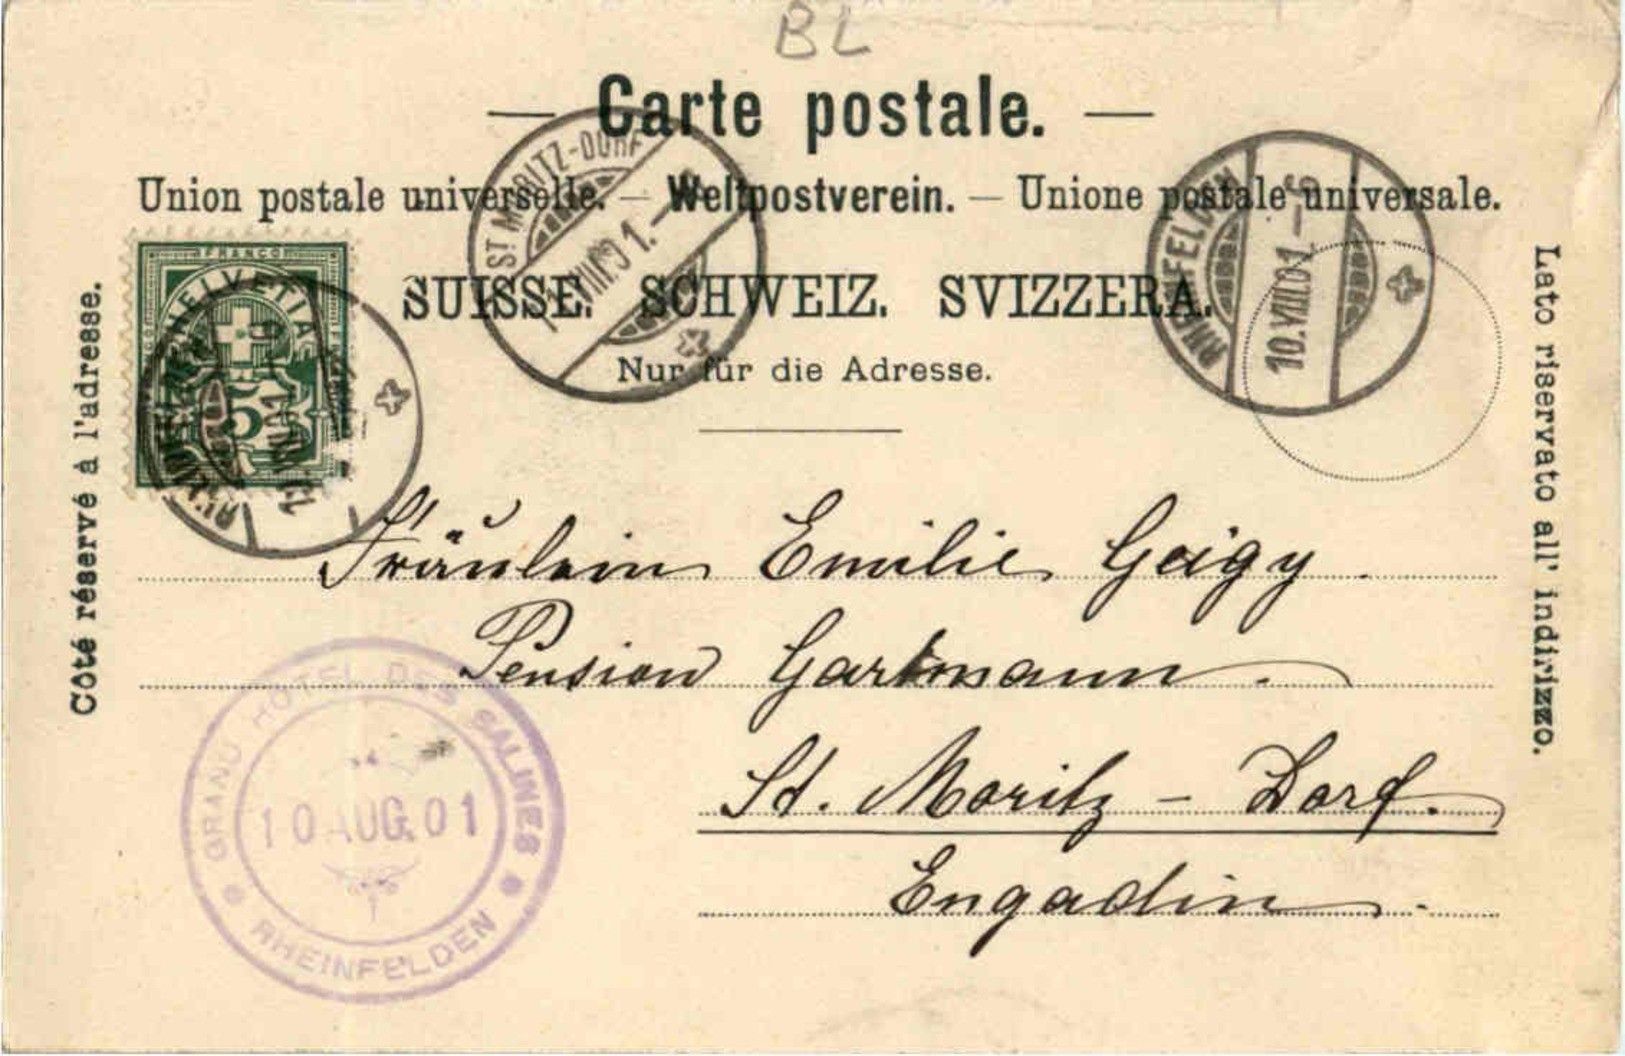 BL
— Carte postale. —
Union postale universelle. — Weltpostverein. — Unione postale universale.
SUISSE. SCHWEIZ. SVIZZERA.
Nur für die Adresse.
Côté réservé à l'adresse.
Lato riservato all' indirizzo.
FRANCO
HELVETIA
5
ST. MORITZ-DORF
RHEINFELDEN
10.VIII.01.–6
Fräulein Emilie Geigy
Pension Gartmann.
St. Moritz – Dorf.
Engadin.
GRAND HOTEL DES SALINES
10 AUG. 01
RHEINFELDEN